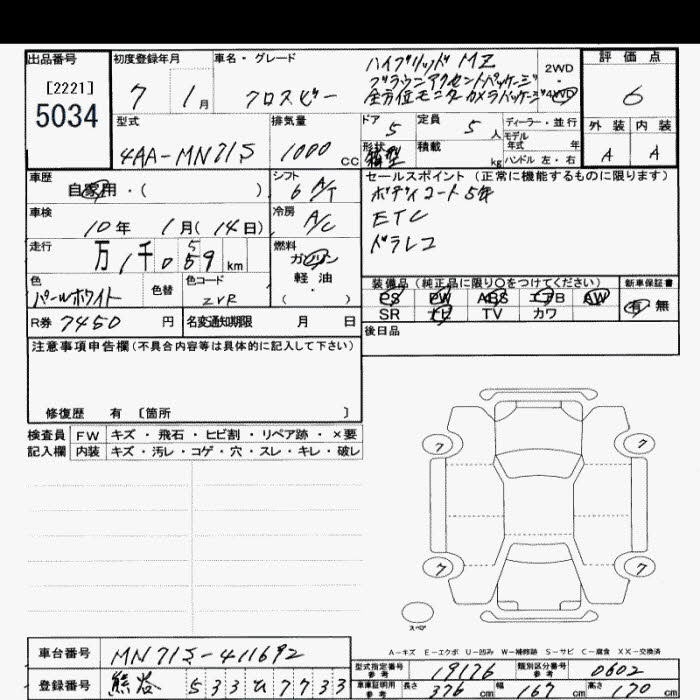 出品番号
[2221]
5034
初度登録年月
7 1月
車名・グレード
クロスビー
ハイブリッド MZ
ブラウンアクセントパッケージ
全方位モニターカメラパッケージ
2WD・4WD
評価点
6
外装 内装
A A
型式
4AA-MN71S
排気量
1000 cc
ドア 5
定員 5人
形状 箱型
積載 kg
ディーラー・並行
モデル年式 年
ハンドル 左・右
車歴
自家用・( )
シフト
6 A/T
車検
10年 1月(14日)
冷房
A/C
走行
万 1千 059 km
5
燃料
ガソリン
軽油
・
( )
色
パールホワイト
色替
色コード
ZVR
R券 7450 円
名変通知期限 月 日
セールスポイント(正常に機能するものに限ります)
ボディコート5年
ETC
ドラレコ
装備品(純正品に限り○をつけてください)
PS PW ABS エアB AW
SR ナビ TV カワ
新車保証書
有 無
後日品
注意事項申告欄(不具合内容等は具体的に記入して下さい)
修復歴 有 〔箇所 〕
検査員記入欄
FW キズ・飛石・ヒビ割・リペア跡・×要
内装 キズ・汚レ・コゲ・穴・スレ・キレ・破レ
7 7
7 7
スペア
A-キズ E-エクボ U-凹み W-補修跡 S-サビ C-腐食 XX-交換済
車台番号 MN71S-411692
登録番号 熊谷 533 ひ 7733
型式指定番号 参考 19176
類別区分番号 参考 0602
車庫証明用 参考 長さ 376 cm 幅 167 cm 高さ 170 cm